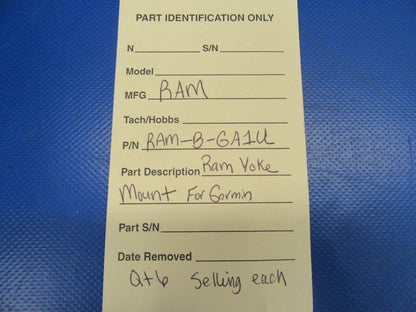 PART IDENTIFICATION ONLY
N S/N
Model
MFG RAM
Tach/Hobbs
P/N RAM-B-GA1U
Part Description Ram Yoke
Mount For Garmin
Part S/N
Date Removed
Qty 6 Selling each